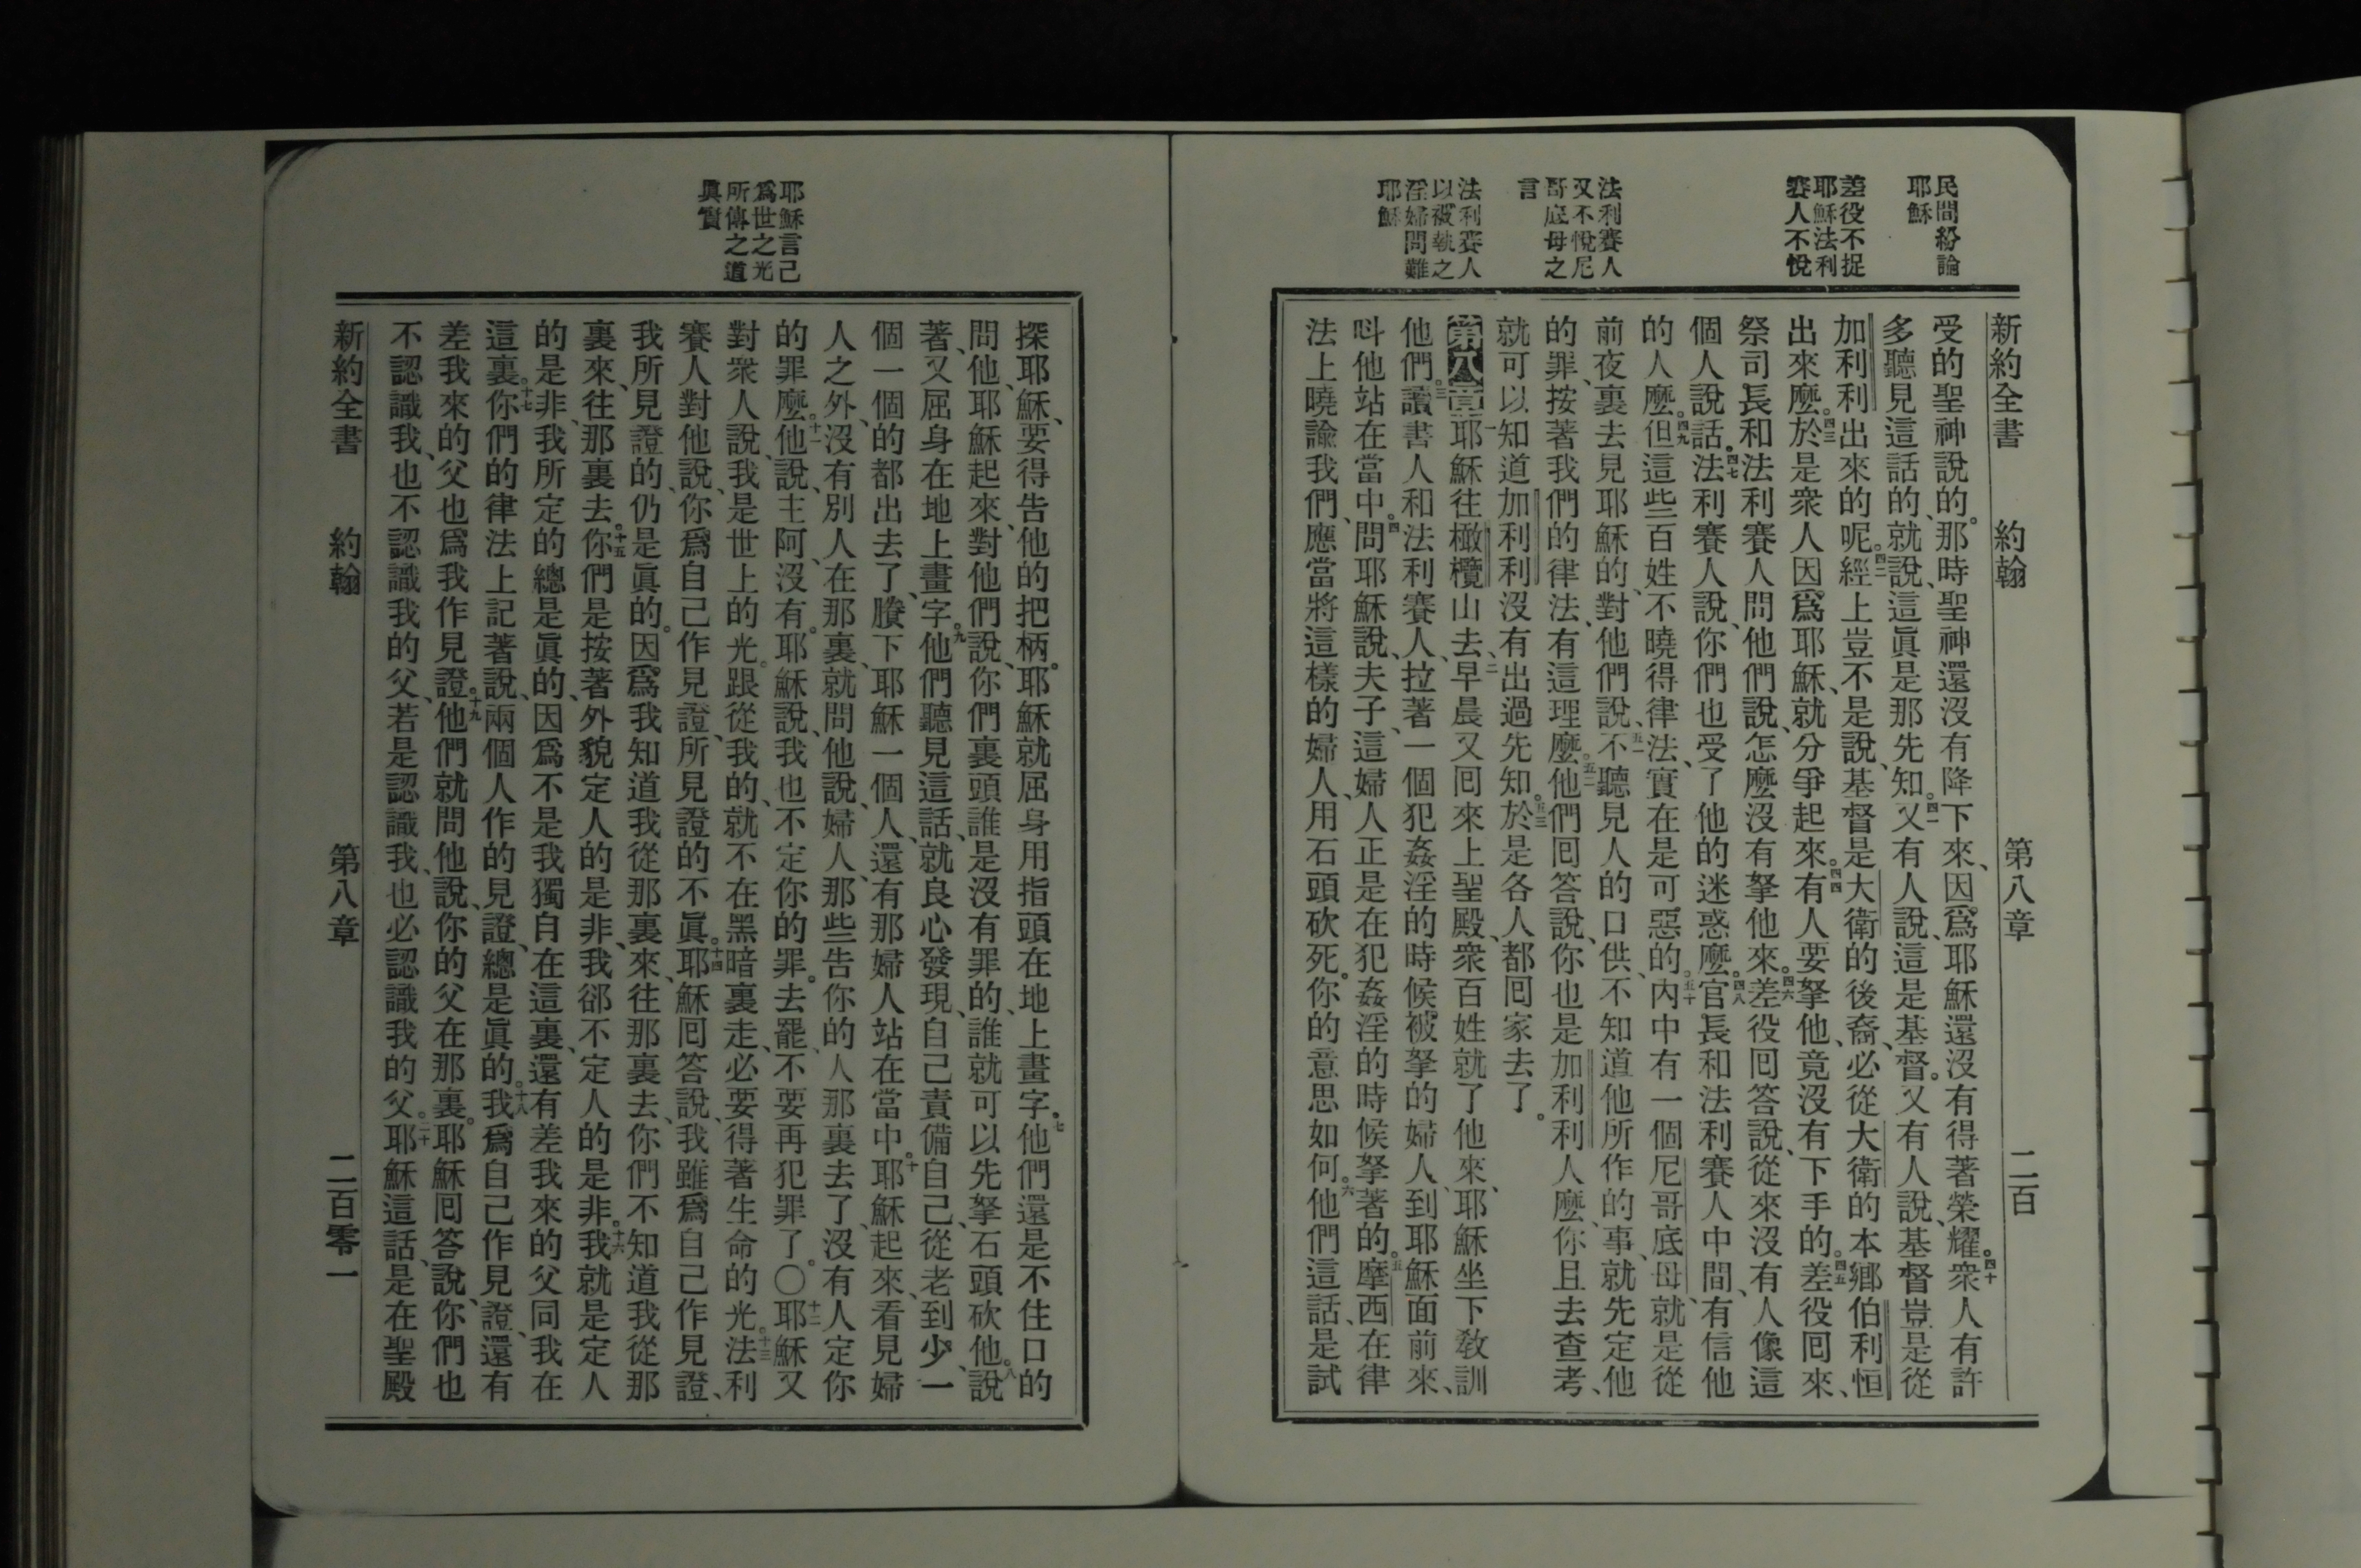 民間紛論
耶穌
差役不捉
耶穌法利
賽人不悅
法利賽人
又不悅尼
哥底母之
言
法利賽人
以被執之
淫婦問難
耶穌
新約全書 約翰 第八章 二百
受的聖神說的。那時聖神還沒有降下來、因爲耶穌還沒有得著榮耀。四十衆人有許
多聽見這話的、就說、這眞是那先知。四一又有人說、這是基督。又有人說、基督豈是從
加利利出來的呢。四二經上豈不是說、基督是大衛的後裔、必從大衛的本鄉伯利恒
出來麼。四三於是衆人因爲耶穌、就分爭起來。四四有人要拏他、竟沒有下手的。四五差役囘來、
祭司長和法利賽人問他們說、怎麼沒有拏他來。四六差役囘答說、從來沒有人像這
個人說話。四七法利賽人說、你們也受了他的迷惑麼。四八官長和法利賽人中間、有信他
的人麼。四九但這些百姓不曉得律法、實在是可惡的。五十內中有一個尼哥底母、就是從
前夜裏去見耶穌的、對他們說、五一不聽見人的口供、不知道他所作的事、就先定他
的罪、按著我們的律法、有這理麼。五二他們囘答說、你也是加利利人麼、你且去查考、
就可以知道加利利沒有出過先知。五三於是各人都囘家去了。
第八章一耶穌往橄欖山去、二早晨又囘來上聖殿、衆百姓就了他來、耶穌坐下敎訓
他們。三讀書人和法利賽人、拉著一個犯姦淫的時候、被拏的婦人、到耶穌面前來、
呌他站在當中。四問耶穌說、夫子、這婦人正是在犯姦淫的時候拏著的。五摩西在律
法上曉諭我們、應當將這樣的婦人、用石頭砍死。你的意思如何。六他們這話、是試
耶穌言己
爲世之光
所傳之道
眞實
探耶穌、要得告他的把柄。耶穌就屈身用指頭在地上畫字。七他們還是不住口的
問他、耶穌起來、對他們說、你們裏頭誰是沒有罪的、誰就可以先拏石頭砍他。八說
著、又屈身在地上畫字。九他們聽見這話、就良心發現、自己責備自己、從老到少、一
個一個的都出去了、賸下耶穌一個人、還有那婦人站在當中。十耶穌起來、看見婦
人之外、沒有別人在那裏、就問他說、婦人、那些告你的人那裏去了、沒有人定你
的罪麼。十一他說、主阿、沒有。耶穌說、我也不定你的罪。去罷、不要再犯罪了。〇十二耶穌又
對衆人說、我是世上的光。跟從我的、就不在黑暗裏走、必要得著生命的光。十三法利
賽人對他說、你爲自己作見證、所見證的不眞。十四耶穌囘答說、我雖爲自己作見證、
我所見證的、仍是眞的。因爲我知道我從那裏來、往那裏去、你們不知道我從那
裏來、往那裏去。十五你們是按著外貌定人的是非、我卻不定人的是非。十六我就是定人
的是非、我所定的總是眞的、因爲不是我獨自在這裏、還有差我來的父同我在
這裏。十七你們的律法上記著說、兩個人作的見證、總是眞的。十八我爲自己作見證、還有
差我來的父也爲我作見證。十九他們就問他說、你的父在那裏。耶穌囘答說、你們也
不認識我、也不認識我的父、若是認識我、也必認識我的父。二十耶穌這話、是在聖殿
新約全書 約翰 第八章 二百零一